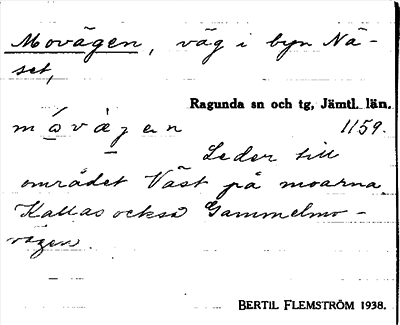 Movägen, väg i byn Nä-
set,
Ragunda sn och tg, Jämtl. län.
måvägen 1159.
Leder till
området Väst på moarna.
Kallas också Gammelmo-
vägen.
BERTIL FLEMSTRÖM 1938.